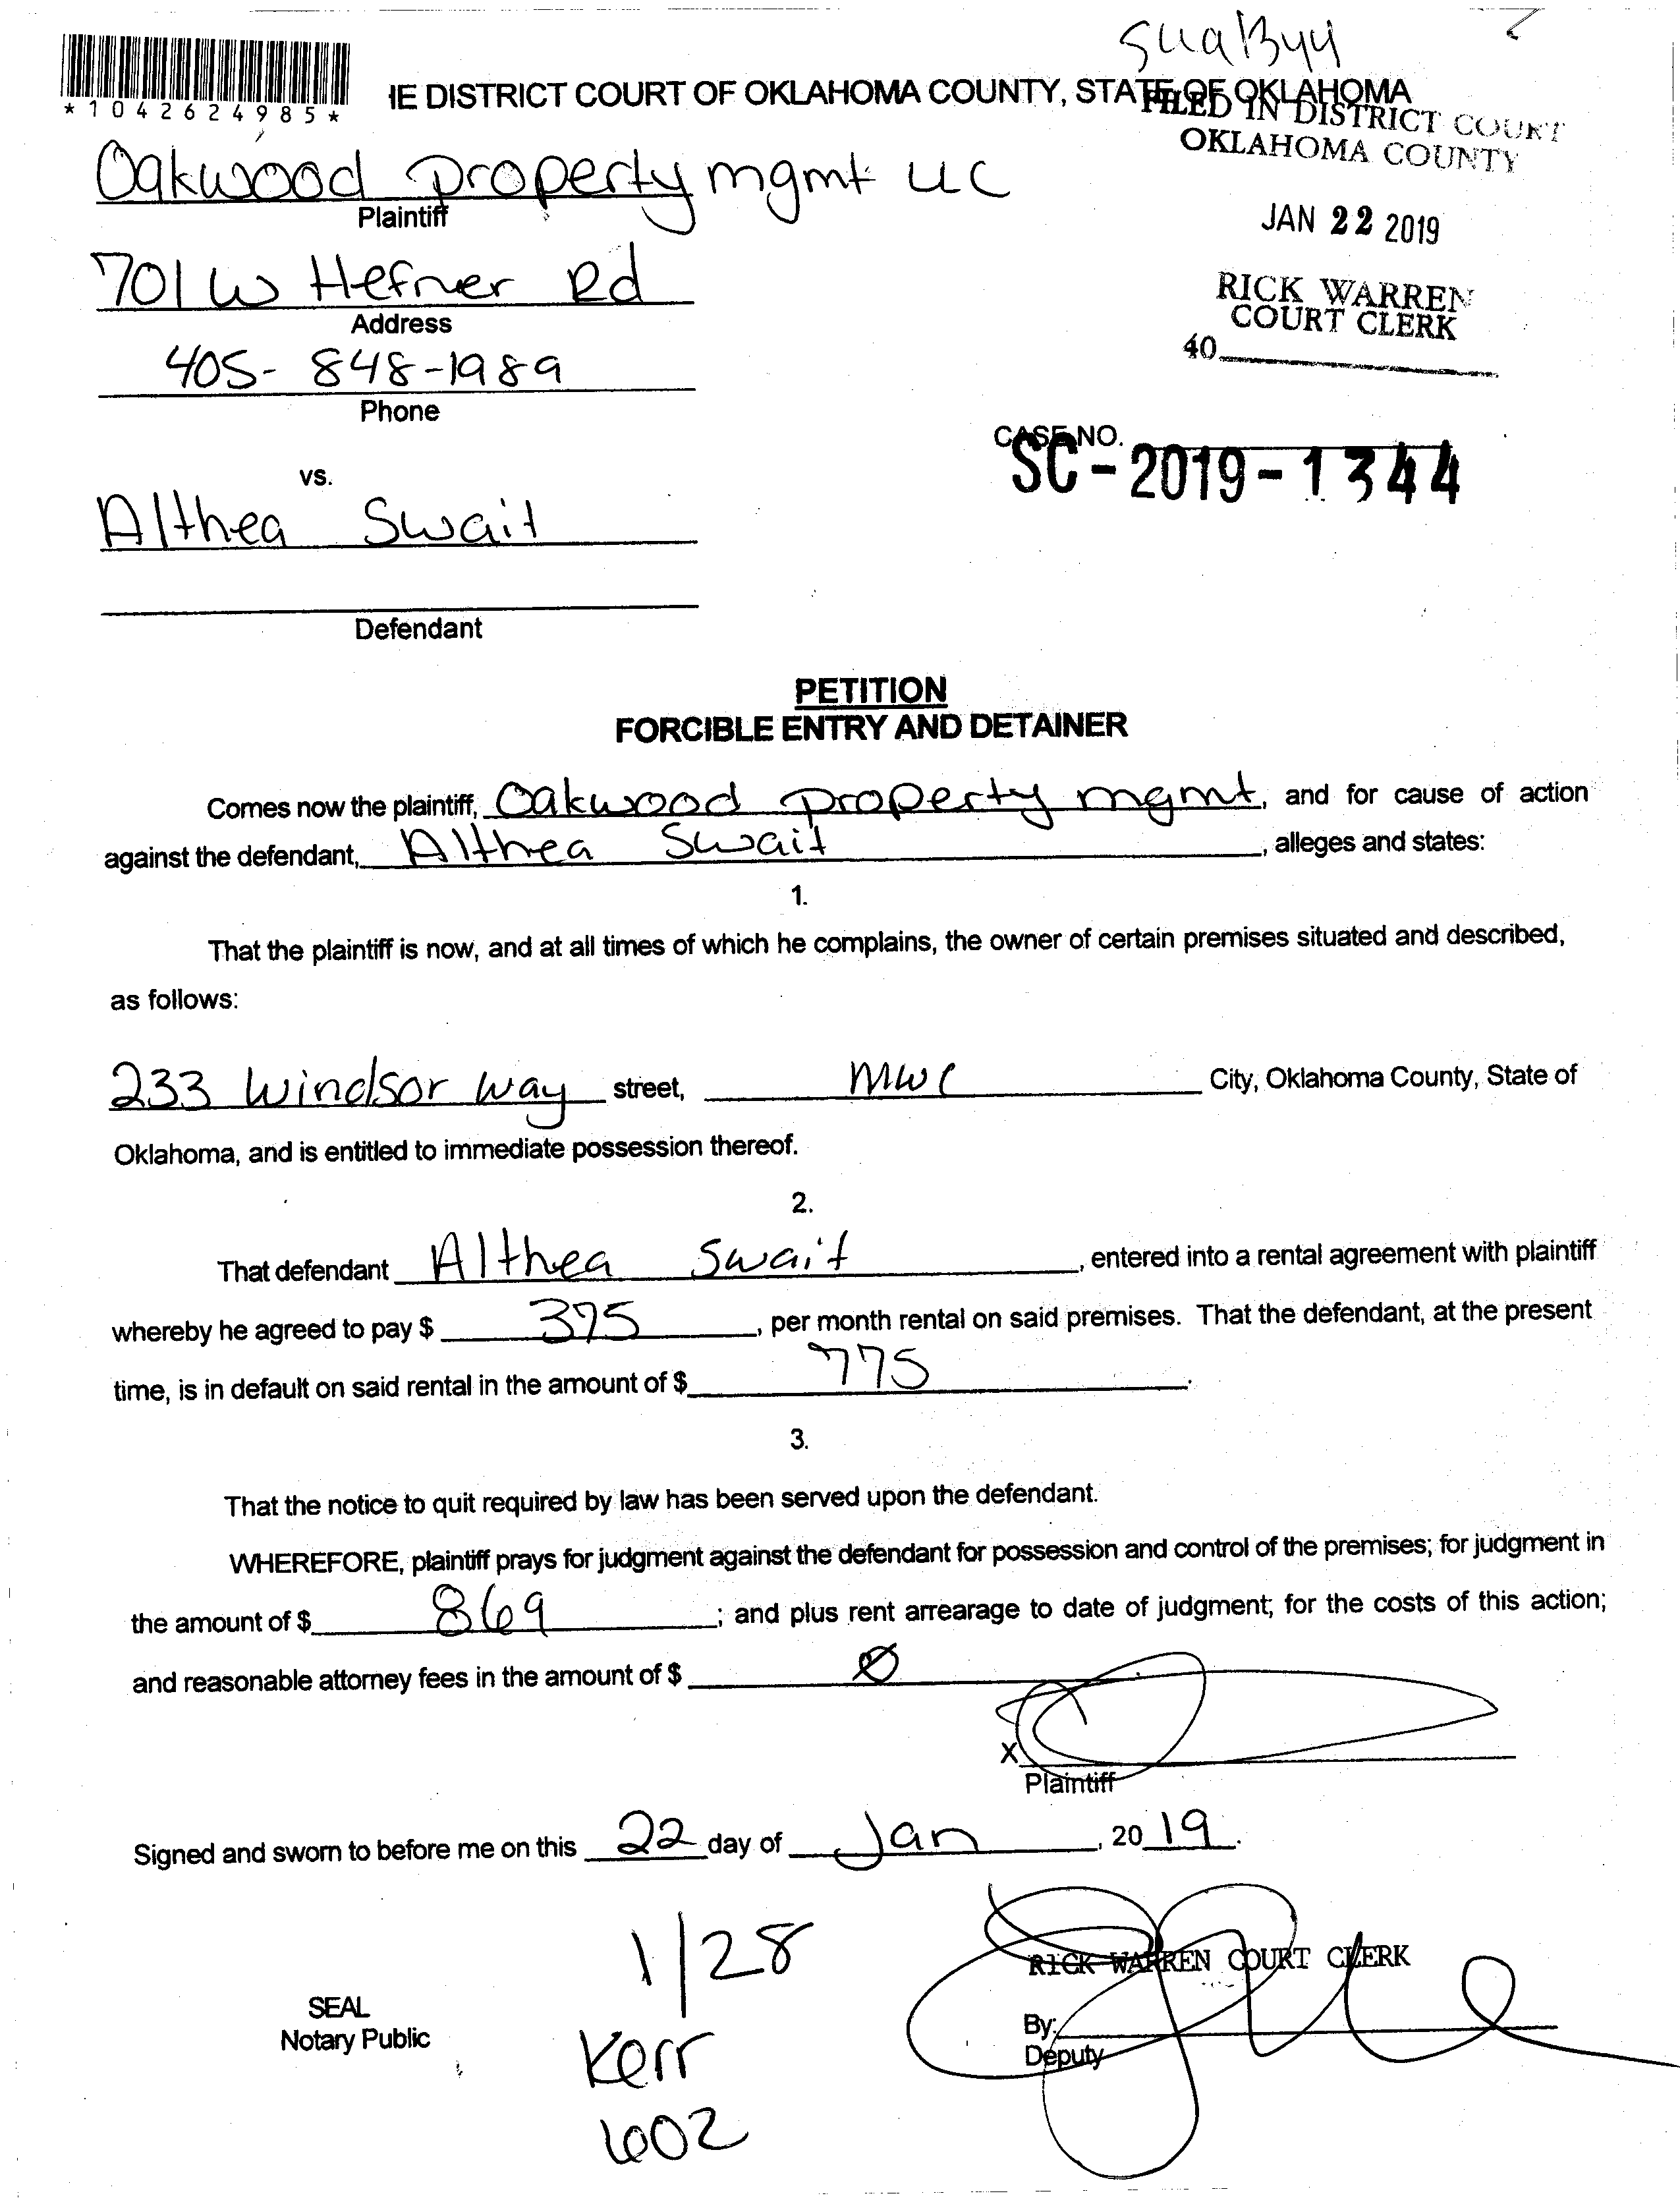 *1042624985*
IE DISTRICT COURT OF OKLAHOMA COUNTY, STATE OF OKLAHOMA
FILED IN DISTRICT COURT
OKLAHOMA COUNTY
Oakwood property mgmt LLC
Plaintiff
JAN 22 2019
701 W Hefner Rd
Address
RICK WARREN
COURT CLERK
405-848-1989
40
Phone
CASE NO.
SC-2019-1344
vs.
Althea Swait
Defendant
PETITION
FORCIBLE ENTRY AND DETAINER
Comes now the plaintiff, Oakwood property mgmt, and for cause of action
against the defendant, Althea Swait, alleges and states:
1.
That the plaintiff is now, and at all times of which he complains, the owner of certain premises situated and described,
as follows:
233 Windsor Way street, MWC City, Oklahoma County, State of
Oklahoma, and is entitled to immediate possession thereof.
2.
That defendant Althea Swait, entered into a rental agreement with plaintiff
whereby he agreed to pay $ 375, per month rental on said premises. That the defendant, at the present
time, is in default on said rental in the amount of $ 775.
3.
That the notice to quit required by law has been served upon the defendant.
WHEREFORE, plaintiff prays for judgment against the defendant for possession and control of the premises; for judgment in
the amount of $ 869; and plus rent arrearage to date of judgment; for the costs of this action;
and reasonable attorney fees in the amount of $ Ø
X
Plaintiff
Signed and sworn to before me on this 22 day of Jan, 2019.
1/28
RICK WARREN COURT CLERK
SEAL
Notary Public
By:
Deputy
Kerr
602